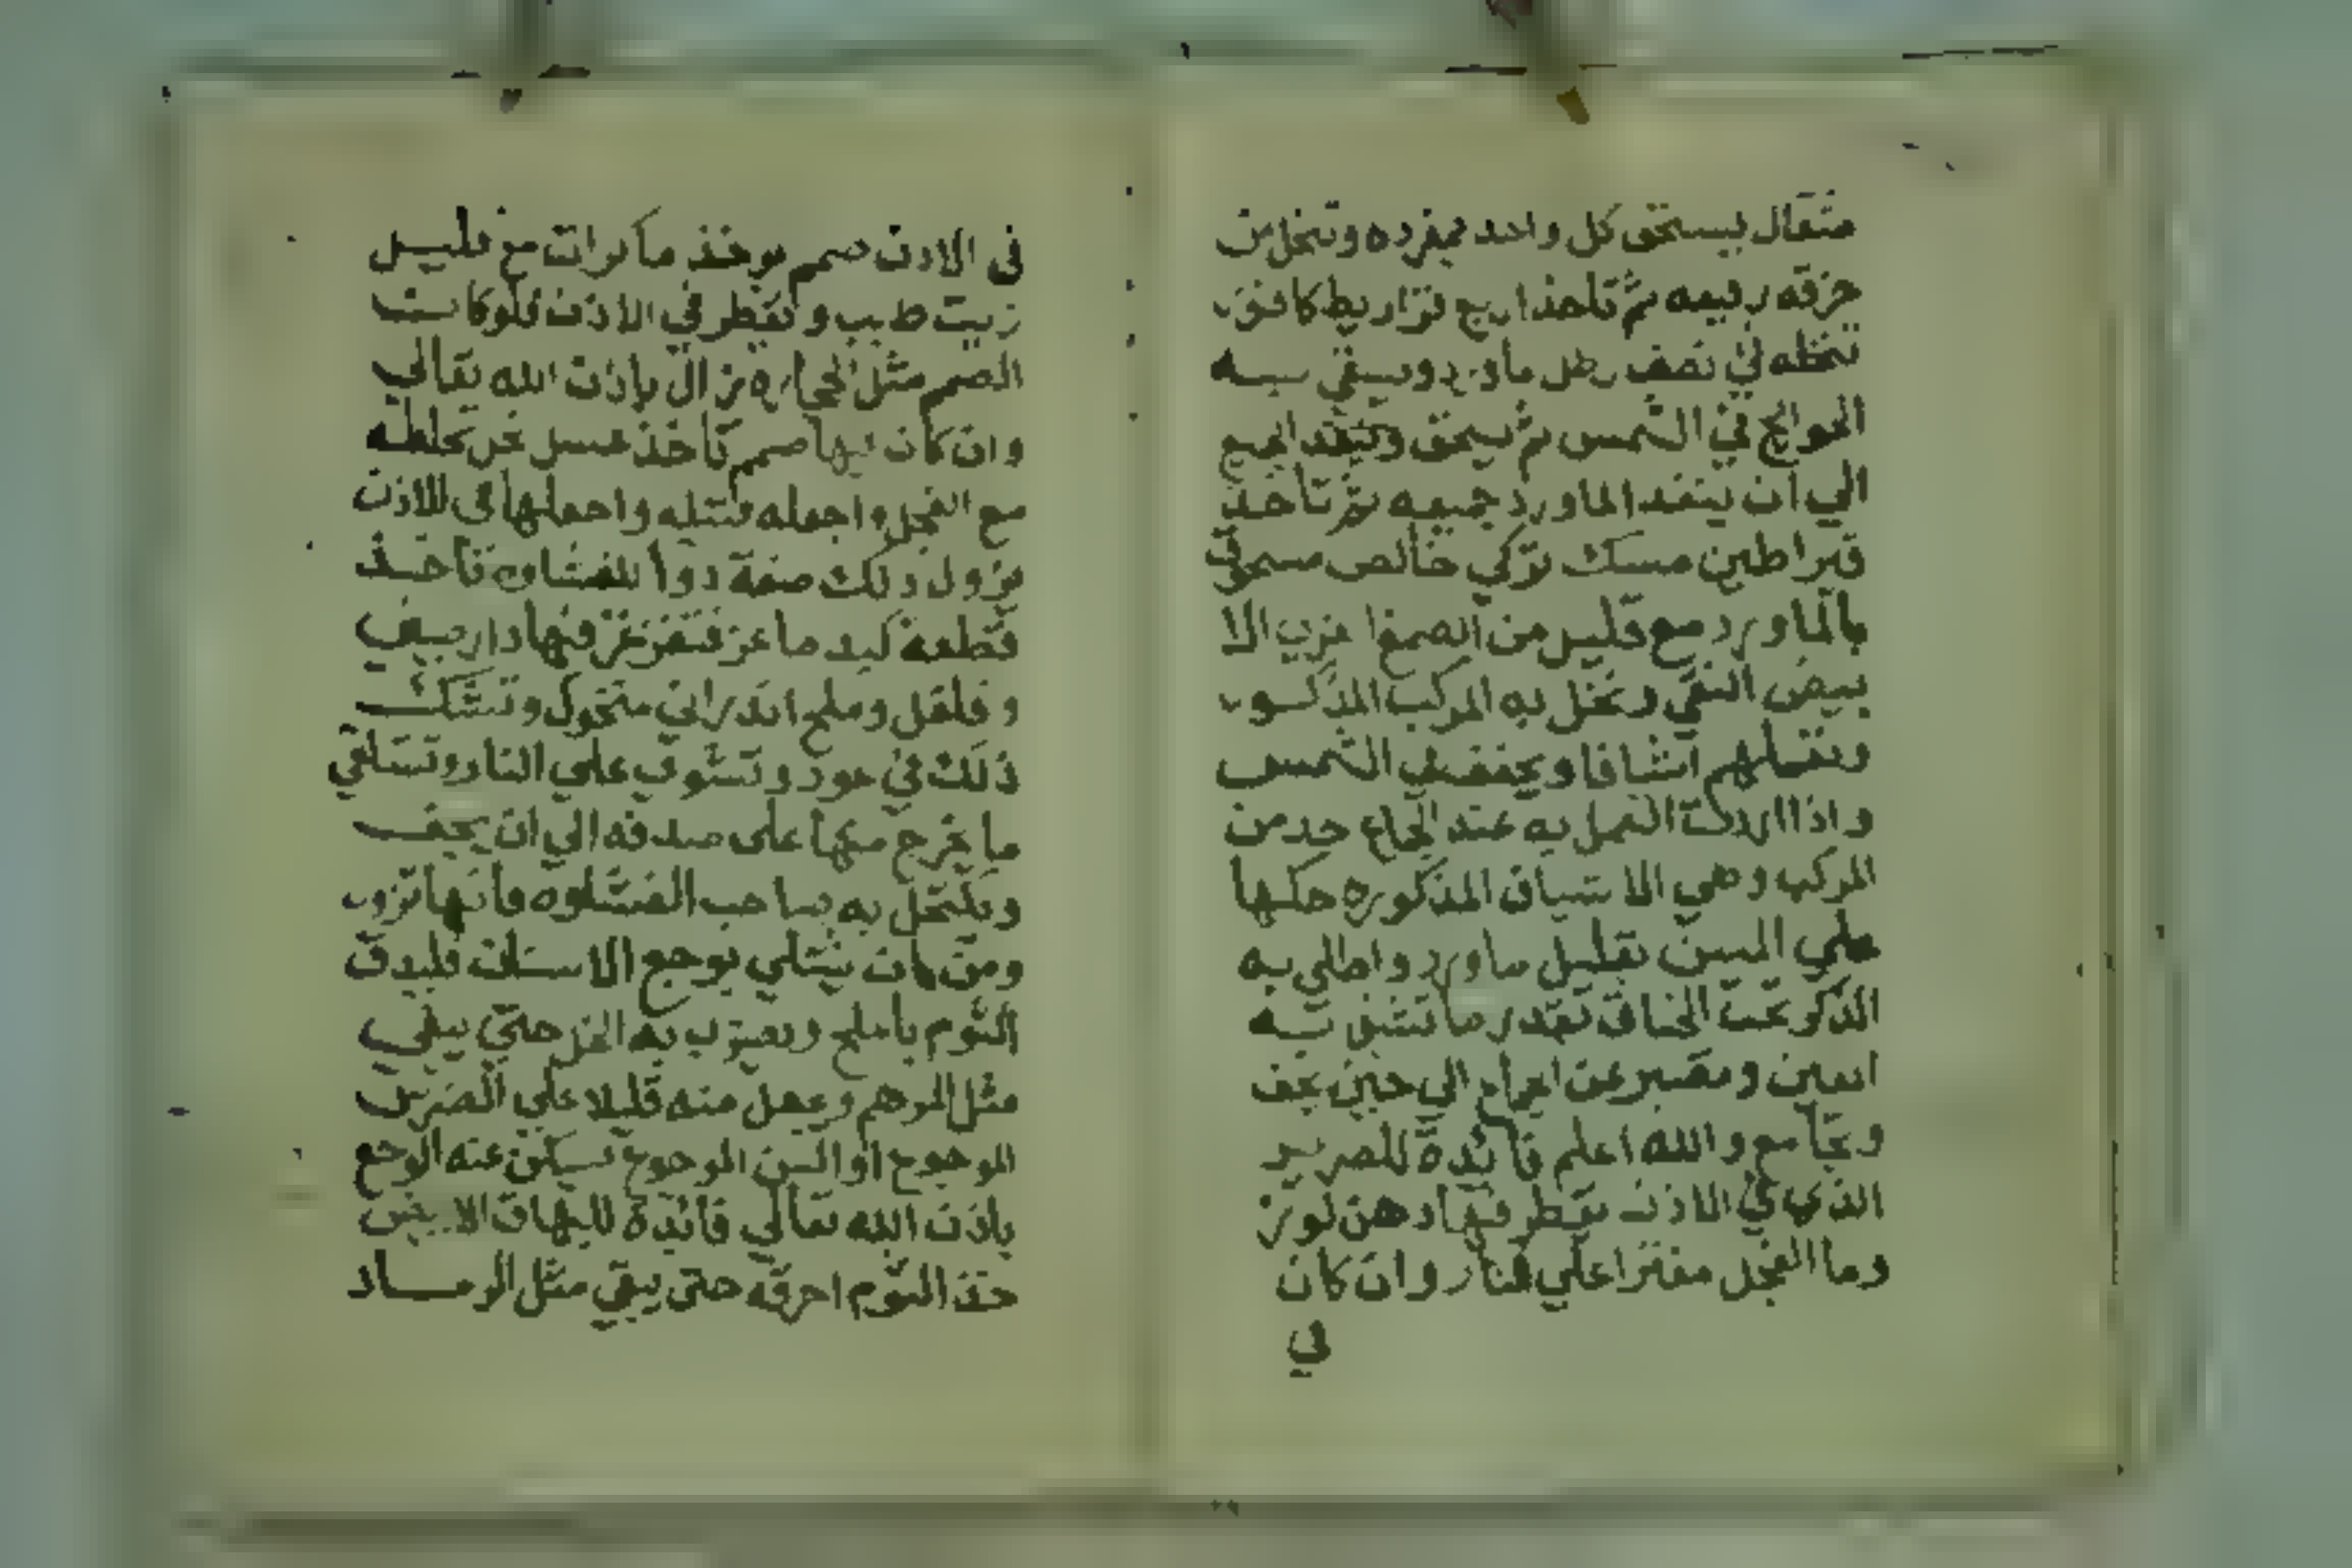 مثقال يسحق كل واحد بمفرده وتنخل من
خرقه رفيعه ثم تاخذ اربع قراريط كافور
تحطه في نصف رطل ماورد ويسقي به
الحوايج في الشمس ثم يسحق
الي ان ينفد الماورد جميعه ثم تاخذ
قيراطين مسك تركي خالص مسحوق
بالماورد مع قليل من الصمغ الا
بيض النقي به المركب المذكور
اشيافا ويجفف الشمس
واذا اردت العمل به عند الجماع خد من
المركب وهي الاشياف المذكوره حكها
علي المسن بقليل ماورد واطلي به
الذكر تحت الختان بقدر ما به
وتصبر عن الي حين يجف
وتجامع والله اعلم فائدة
الذي في الاذن يقطر فيها دهن لوز
وما الفجل مفترا علي النار وان كان
في
في الاذن صمم يوخذ ما كرات مع قليل
زيت طيب وتقطر في الاذن فلو كانت
الصمم مثل الحجاره زال باذن الله تعالي
وان كان بها صمم تاخذ عسل نحل تخلطه
مع الفجل واجعله فتيله واجعلها في الاذن
يزول ذلك صفة دوا للغشاوه تاخذ
قطعة كبد ماعز فيها دارصيني
وفلفل وملح اندراني منخول وتشك
ذلك في عود وتشوي علي النار وتتلقي
ما يخرج منها على صدفه الي ان يجف
ويكتحل به صاحب الغشاوه فانها تزول
ومن كان يبتلي بوجع الاسنان فليدق
الثوم بالملح ويضرب به الخل حتي يبقي
مثل المرهم وتجعل منه قليلا علي الضرس
الموجوع او السن الموجوع يسكن عنه الوجع
باذن الله تعالي فائدة للبهاق الابيض
خذ الثوم احرقه حتى يبقي مثل الرماد